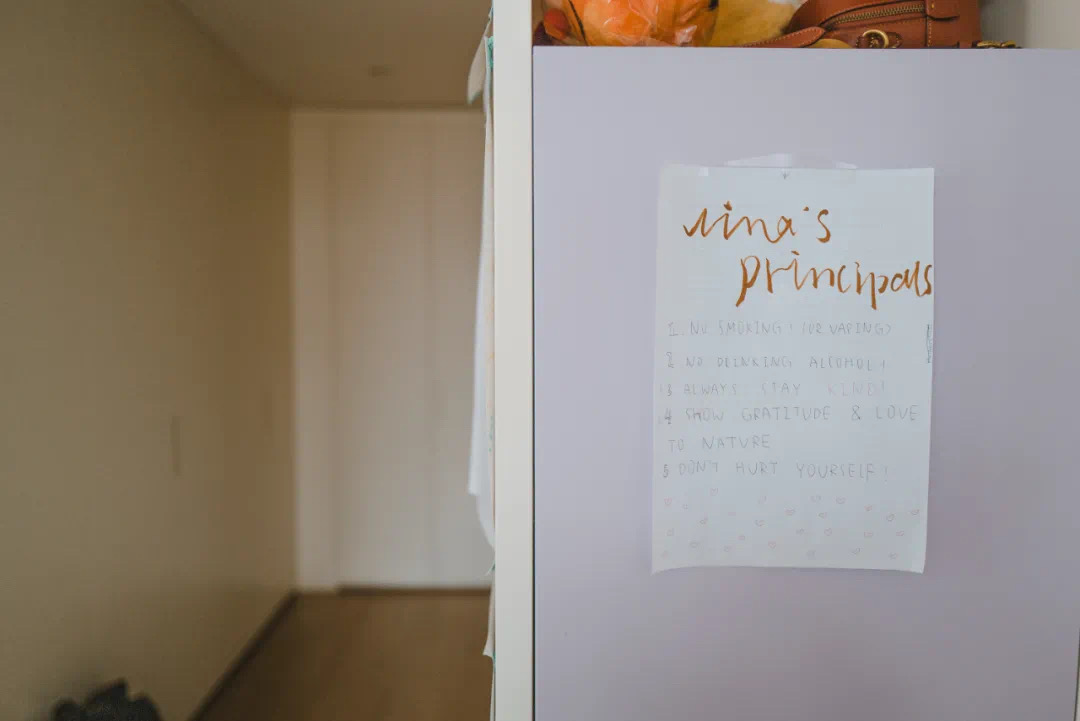 nina's
principals
1. NO SMOKING! (OR VAPING)
2 NO DRINKING ALCOHOL!
3 ALWAYS STAY KIND!
4 SHOW GRATITUDE & LOVE
TO NATURE
5 DON'T HURT YOURSELF!